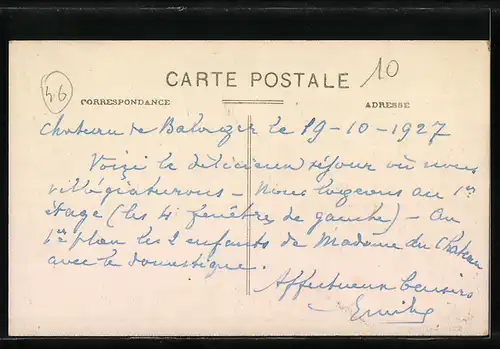 46
10
CARTE POSTALE
CORRESPONDANCE
ADRESSE
Chateau de le 19-10-1927
Voici le délicieux séjour où nous
villégiaturons - Nous logeons au 1er
étage (les 4 fenêtres de gauche) - Au
1er plan les 2 enfants de Madame du Chateau
avec le domestique.
Affectueux baisers